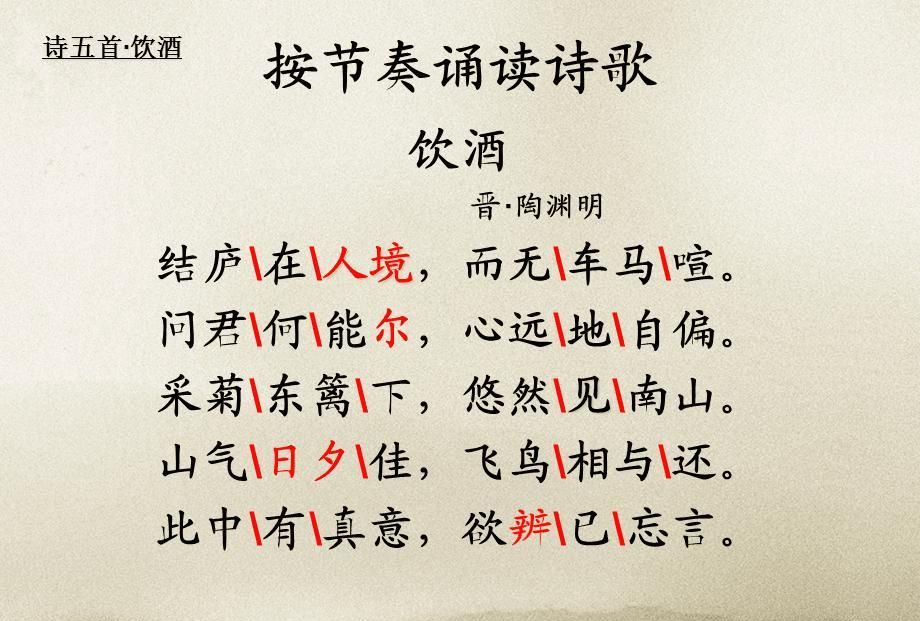 诗五首·饮酒
按节奏诵读诗歌
饮酒
晋·陶渊明
结庐\在\人境，而无\车马\喧。
问君\何\能尔，心远\地\自偏。
采菊\东篱\下，悠然\见\南山。
山气\日夕\佳，飞鸟\相与\还。
此中\有\真意，欲辨\已\忘言。